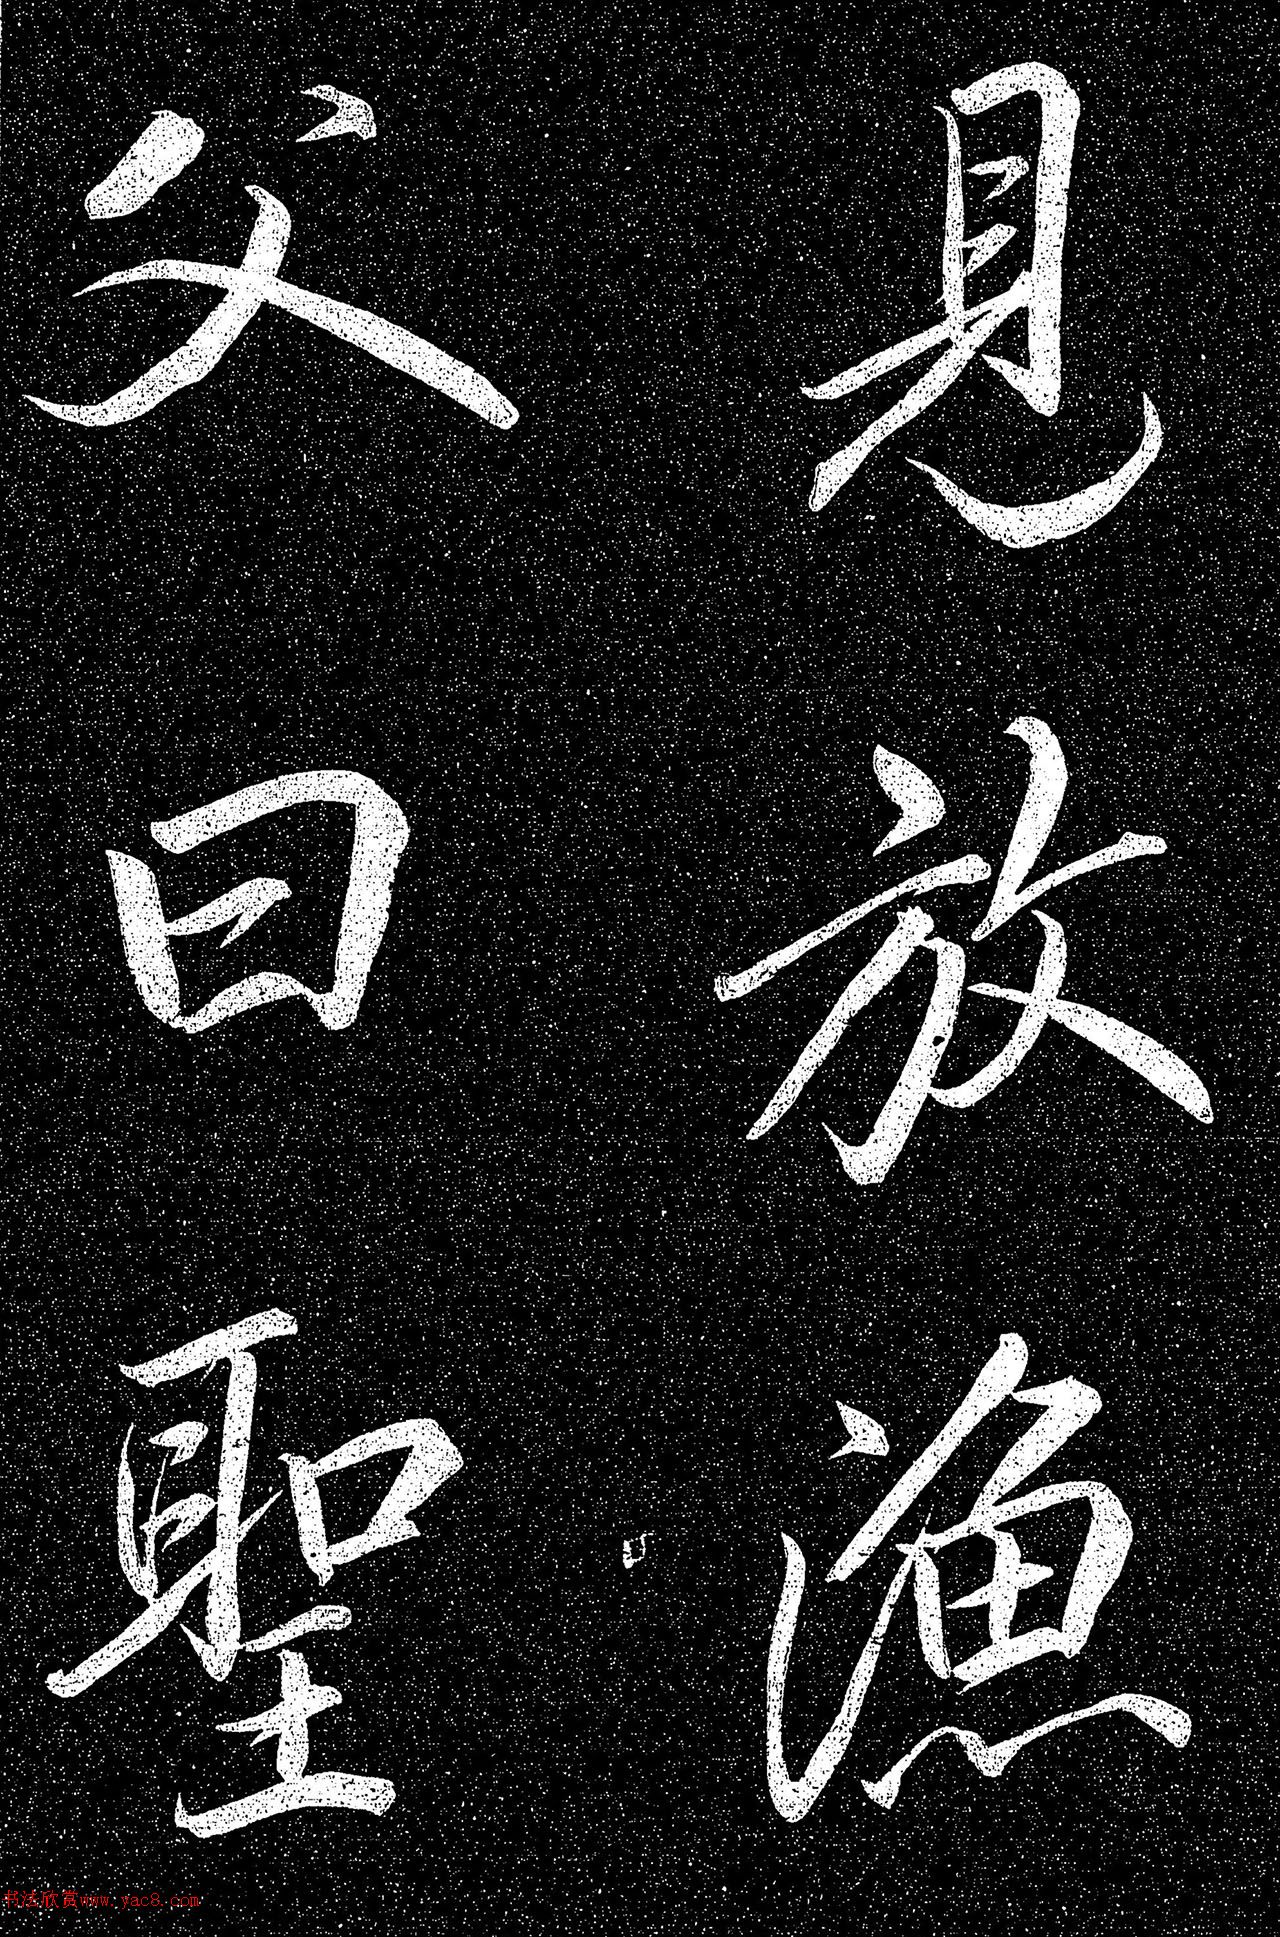 見放漁
父曰聖
书法欣赏www.yac8.com